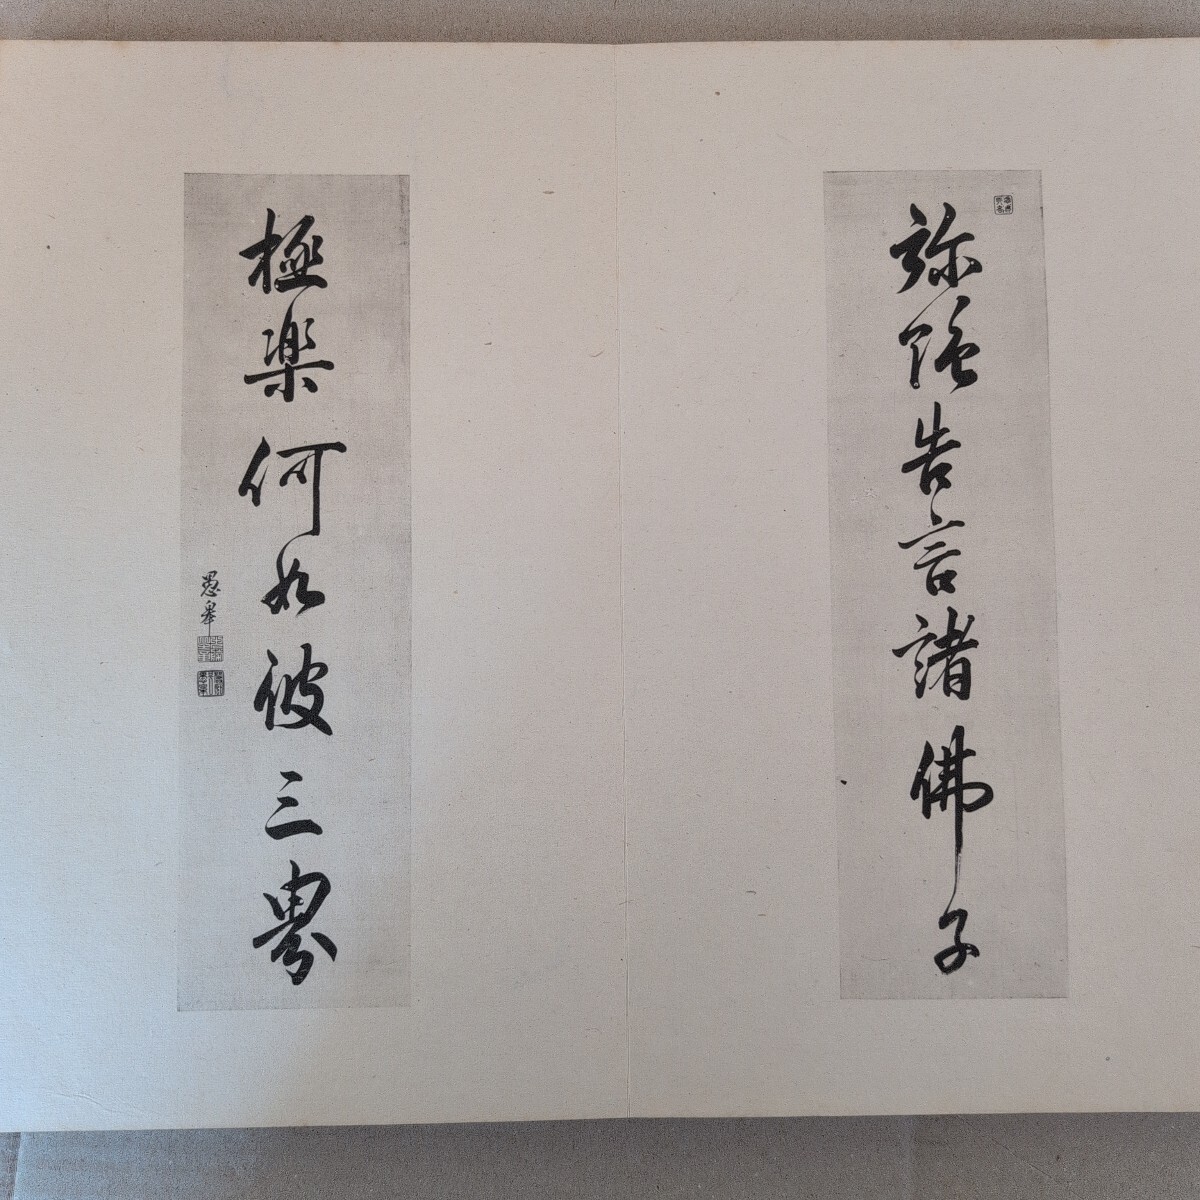 弥陀告言諸佛子
極楽何如彼三界
愚